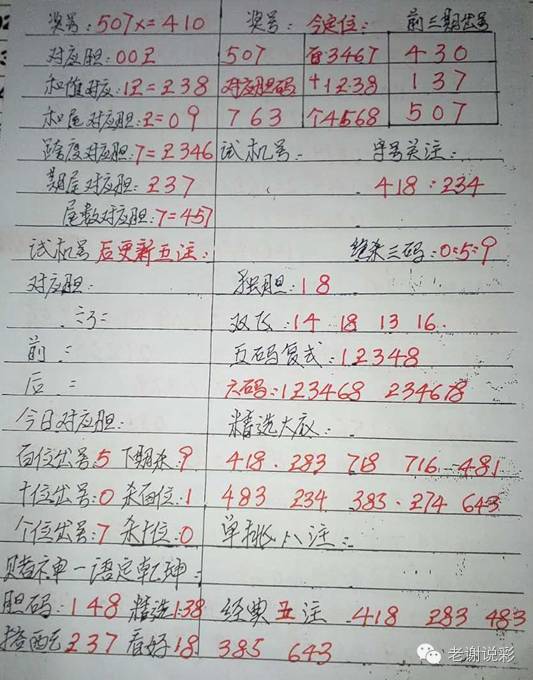 奖号:507x=410 奖号: 今定位: 前三期出号
对应胆:00又 507 百3467 430
和值对应:12=238 对应胆码 十1238 137
和尾对应胆:2=09 763 个4568 507
跨度对应胆:7=2346 试机号: 字号关注:
期尾对应胆:237 418:234
尾数对应胆:7=457
试机号后更新五注: 绝杀三码:0:5:9
对应胆: 独胆:18
双飞:14 18 13 16
前:= 五码复式:12348
后:= 六码:123468 234678
今日对应胆: 精选大底:
百位出号:5 下期杀:9 418. 283 718 716 481
十位出号:0 杀百位:1 483 234 383. 274 643
个位出号:7 杀十位:0 单挑八注:
赌神一语定乾坤:
胆码:148 精选138 经典五注 418 283 483
搭配237 看好18 385 643
老谢说彩